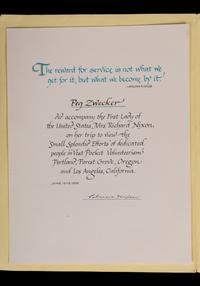 The reward for service is not what we
get for it, but what we become by it.
Peg Zwecker
did accompany the First Lady of
the United States, Mrs. Richard Nixon,
on her trip to view the
Small Splendid Efforts of dedicated
people in Vest Pocket Volunteerism
Portland, Forest Grove, Oregon
and Los Angeles, California.